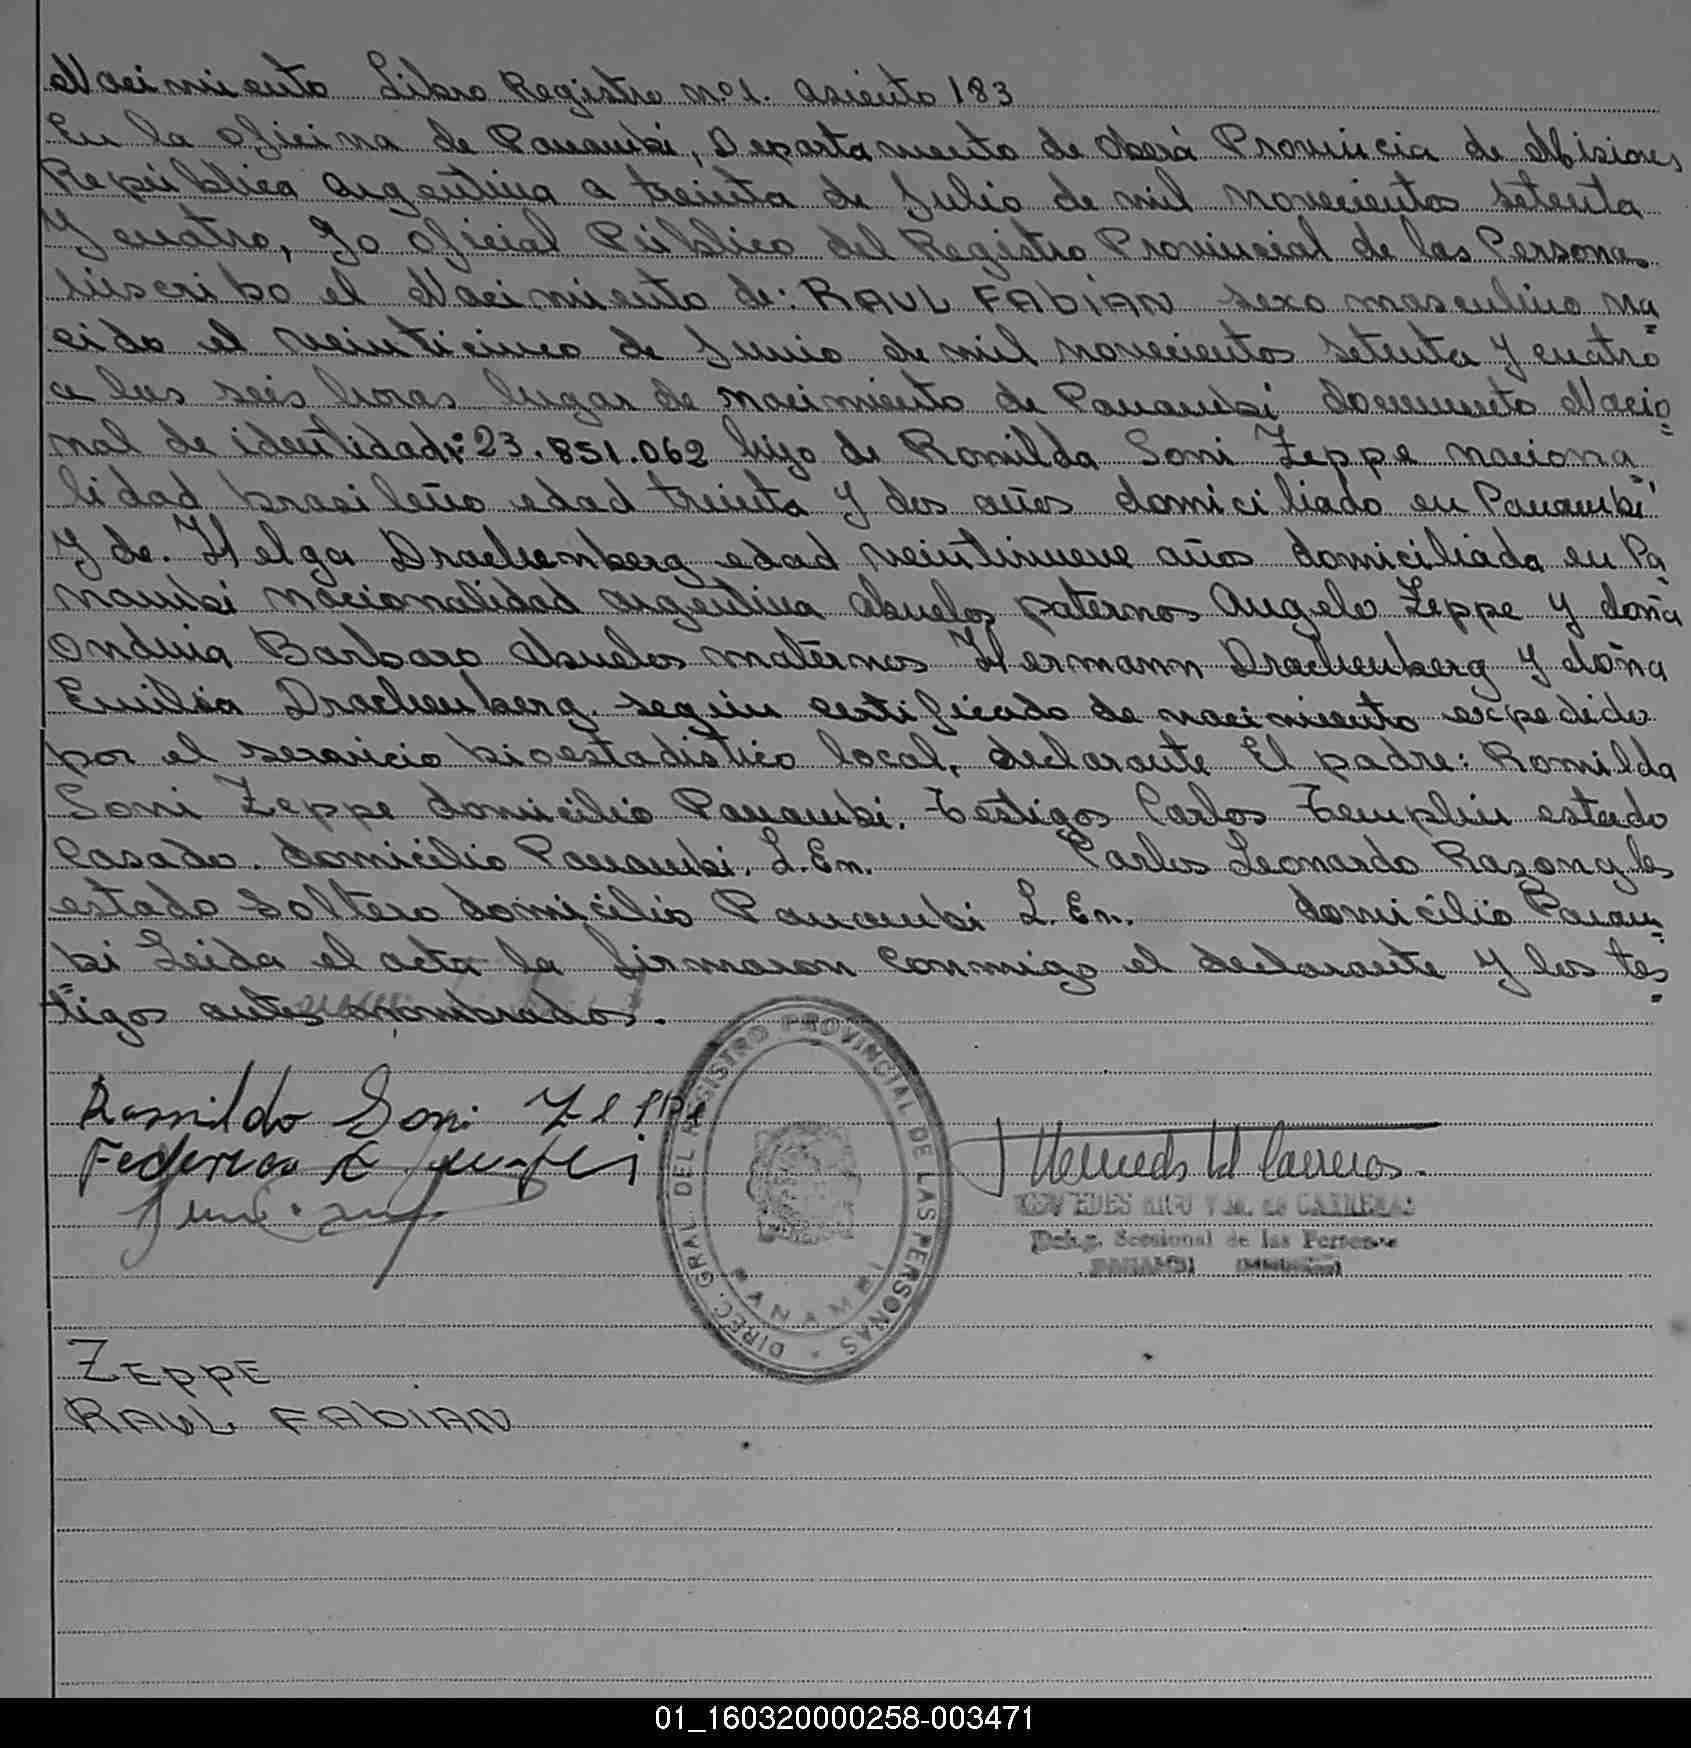 Nacimiento Libro Registro nº1. asiento 183
En la oficina de Panambí, Departamento de Oberá Provincia de Misiones
República Argentina a treinta de Julio de mil novecientos setenta
Y cuatro, Yo oficial Público del Registro Provincial de las Personas
inscribo el Nacimiento de: RAUL FABIAN sexo masculino na
cido el veinticinco de Junio de mil novecientos setenta y cuatro
a las seis horas lugar de nacimiento de Panambí documento Nacio
nal de identidad: 23.851.062 hijo de Romilda Soni Zeppe naciona
lidad brasileño edad treinta y dos años domiciliado en Panambí
y de. Helga Drachenberg edad veintinueve años domiciliada en Pa
nambi nacionalidad argentina abuelos paternos Angelo Zeppe y doña
Ondina Barbaro abuelos maternos Hermann Drachenberg y doña
Emilia Drachenberg. según certificado de nacimiento expedido
por el servicio bioestadístico local, declarante El padre: Romilda
Soni Zeppe domicilio Panambi. Testigos Carlos Templin estado
Casado. domicilio Panambi. L.En. Carlos Leonardo
estado Soltero domicilio Panambi L.En. domicilio Panam
bi Leida el acta la firmaron conmigo el declarante y los tes
tigos antes nombrados.
Romildo Soni Zeppe
DIREC. GRAL DEL REGISTRO PROVINCIAL DE LAS PERSONAS
PANAMBI
de CARRERAS
Deleg. Seccional de las Personas
PANAMBI (Misiones)
ZEPPE
RAUL FABIAN
01_160320000258-003471